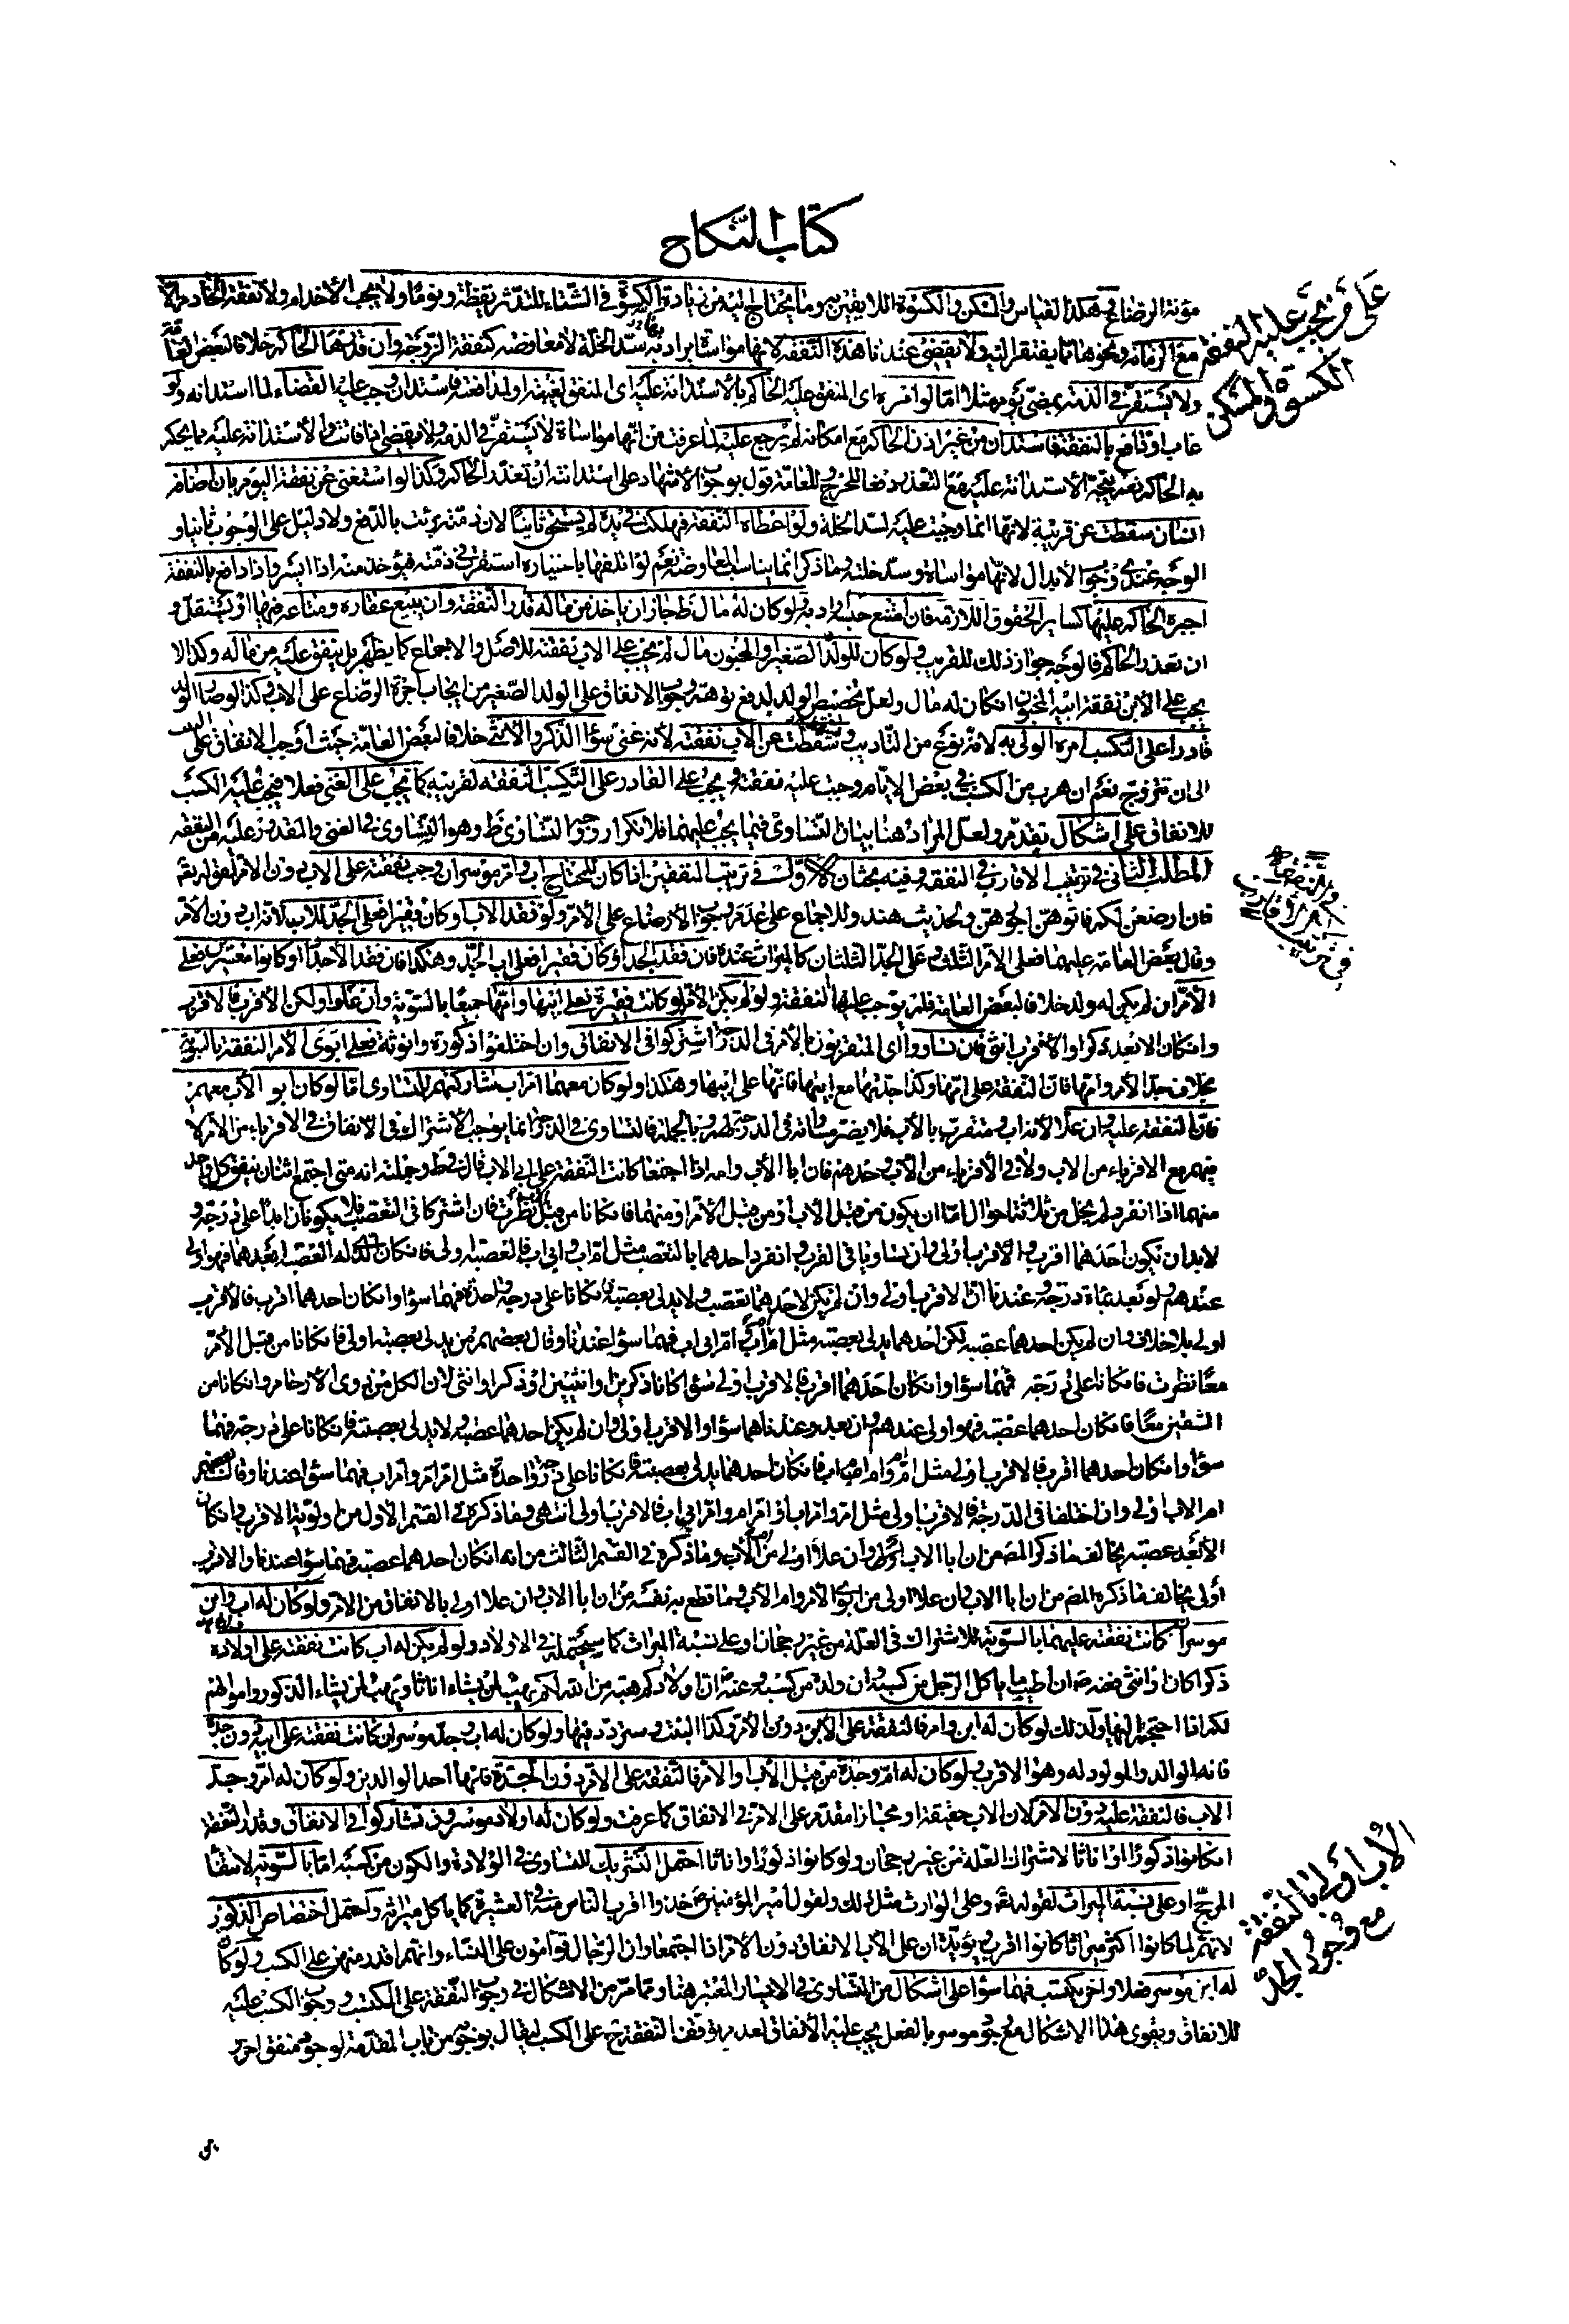 كتاب النكاح
مؤنة الرضاع هكذا القياس والمسكن والكسوة اللايقين به وما يحتاج اليه من زيادة الكسوة فى الشتاء للتدثر يقظة ونوما ولا يجب الاخدام ولا نفقة الخادم الا
مع الزمانة ونحوها مما يفتقر اليه ولا يقضى عندنا هذه النفقة لانها مواساة يراد به سد الخلة لا معاوضة كنفقة الزوجة وان قدرها الحاكم خلافا لبعض العامة
ولا يستقر فى الذمة بمضى يوم مثلا اما لو امره اى المنفق عليه الحاكم بالاستدانة عليه اى المنفق لغيبته او لمدافعته فاستدان وجب عليه القضاء لما استدانه ولو
غاب او دافع بالنفقة فاستدان من غير اذن الحاكم مع امكانه لم يرجع عليه لما عرفت من انها مواساة لا يستقر فى الذمة ولا يقضى اذا فاتت والاستدانة عليه مما يحكم
به الحاكم نعم يتجه الاستدانة عليه مع التعذر دفعا للحرج وللعامة قول بوجوب الاشهاد على استدانته ان تعذر الحاكم وكذا لو استغنى عن نفقة اليوم بان اضافه
انسان سقطت عن قريبه لانها انما وجبت عليه لسد الخلة ولو اعطاه النفقة فهلكت فى يده لم يستحق ثانيا لان ذمته برئت بالدفع ولا دليل على الوجوب ثانيا و
الوجه عندى وجوب الابدال لانها مواساة وسد خلته وما ذكر انما يناسب المعاوضة نعم لو اتلفها باختياره استقرت فى ذمته فيؤخذ منه اذا ايسر واذا دافع بالنفقة
اجبره الحاكم عليها كساير الحقوق اللازمة فان امتنع حبسه او ادبه ولو كان له مال ظ جاز ان ياخذ من ماله قدر النفقة وان يبيع عقاره ومتاعه فيها او يستقل و
ان تعذر الحاكم فالوجه جواز ذلك للقريب ولو كان للولد الصغير او المجنون مال لم يجب على الاب نفقته للاصل والاجماع كما يظهر بل ينفق عليه من ماله وكذا لا
يجب على الابن نفقة ابيه المجنون ان كان له مال ولعل تخصيص الولد لدفع توهم وجوب الانفاق على الولد الصغير من ايجاب اجرة الرضاع على الاب وكذا لو صار الولد
قادرا على التكسب امره الولى به لانه نوع من التاديب وسقطت عن الاب نفقته لانه غنى سواء الذكر والانثى خلافا لبعض العامة حيث اوجب الانفاق على البنت
الى ان تتزوج نعم ان هرب من الكسب فى بعض الايام وجبت عليه نفقته ويجب على القادر على التكسب النفقة لقريبه كما يجب على الغنى فعلا فيجب عليه الكسب
للانفاق على اشكال تقدم ولعل المراد هنا بيان التساوى فيما يجب عليهما فلا تكرار وجه التساوى ظ وهو التساوى فى الغنى والتقدير عليه من النفقة
المطلب الثانى فى ترتيب الاقارب فى النفقة وفيه بحثان الاول فى ترتيب المنفقين اذا كان للمحتاج اب وام موسران وجب نفقته على الاب دون الام لقوله تعالى
فان ارضعن لكم فاتوهن اجورهن ولحديث هند وللاجماع على عدم وجوب الارضاع على الام ولو فقد الاب او كان فقيرا فعلى الجد للاب لانه اب دون الام
وقال بعض العامة عليهما فعلى الام الثلث وعلى الجد الثلثان كالميراث عنده فان فقد الجد او كان فقيرا فعلى اب الجد وهكذا فان فقد الاجداد او كانوا معسرين فعلى
الام ان لم يكن له ولد خلافا لبعض العامة فلم يوجب عليها النفقة ولو لم يكن الام او كانت فقيرة فعلى ابيها وامها جميعا بالسوية وان علوا ولكن الاقرب فالاقرب
وان كان الابعد ذكرا والاقرب انثى فان تساووا اى المتقربون بالام فى الدرجة اشتركوا فى الانفاق وان اختلفوا ذكورة وانوثة فعلى ابوى الام النفقة بالسوية
بخلاف جد الام وامها فان النفقة على امها وكذا جدتها مع ابيها فانها على ابيها وهكذا ولو كان معهما ام اب شاركتهم للتساوى اما لو كان ابو الاب معهم
فان النفقة عليه وان علا لانه اب ومتقرب بالاب فلا يضر مساواته فى الدرجة لهم وبالجملة فالتساوى فى الدرجة انما يوجب الاشتراك فى الانفاق فى الاقرباء من الام لا
فيهم مع الاقرباء من الاب ولا فى الاقرباء من الاب وحدهم فان ابا الاب وامه اذا اجتمعا كانت النفقة على ابى الاب قال فى ط وجملته انه متى اجتمع اثنان ينفق كل واحد
منهما اذا انفرد لم يخل من ثلاثة احوال اما ان يكون من قبل الاب او من قبل الام او منهما فان كانا من قبل الاب نظرت فان اشتركا فى التعصيب فلا يكونان ابدا على درجة و
لا بد ان يكون احدهما اقرب والاقرب اولى وان تساويا فى القرب وانفرد احدهما بالتعصيب مثل ام اب وابى اب فالعصبة اولى فان كان الذى له العصبة ابعدهما فهو اولى
عندهم ولو بعد بمائة درجة وعندنا ان الاقرب اولى وان لم يكن لاحدهما تعصيب ولا يدلى بعصبة فان كانا على درجة واحدة فهما سواء وان كان احدهما اقرب فالاقرب
اولى بلا خلاف وان لم يكن احدهما عصبة لكن احدهما يدلى بعصبة مثل ام ام اب وام ابى اب فهما سواء عندنا وقال بعضهم من يدلى بعصبة اولى فان كانا من قبل الام
معا نظرت فان كانا على درجة فهما سواء وان كان احدهما اقرب فالاقرب اولى سواء كانا ذكرين او انثيين او ذكرا وانثى لان الكل من ذوى الارحام وان كانا من
الشقين معا فان كان احدهما عصبة فهو اولى عندهم وان بعد وعندنا هما سواء والاقرب اولى وان لم يكن احدهما عصبة ولا يدلى بعصبة فان كانا على درجة فهما
سواء وان كان احدهما اقرب فالاقرب اولى مثل ام ام وام ام اب فان كان احدهما يدلى بعصبة فان كانا على درجة واحدة مثل ام ام وام اب فهما سواء عندنا وقال بعضهم
ام الاب اولى وان اختلفا فى الدرجة فالاقرب اولى مثل ام وام اب او ام ام وام ابى اب فالاقرب اولى انتهى وما ذكره فى القسم الاول من اولوية الاقرب وان كان
الابعد عصبة يخالف ما ذكر المص من ان ابا الاب اولى وان علا اولى من ام الاب وما ذكره فى القسم الثالث من انه ان كان احدهما عصبة فهما سواء عندنا والاقرب
اولى يخالف ما ذكره المص من ان ابا الاب وان علا اولى من ابوى الام وام الاب وما قطع به نفسه من ان ابا الاب وان علا اولى بالانفاق من الام ولو كان له اب وابن
موسران كانت نفقته عليهما بالسوية للاشتراك فى العلة من غير رجحان او على نسبة الميراث كما سيحتمله فى الاولاد ولو لم يكن له اب كانت نفقته على اولاده
ذكرا كان او انثى فعنه ص ان اطيب ما ياكل الرجل من كسبه وان ولده من كسبه وعنه ص ان اولادكم هبة من الله لكم يهب لمن يشاء اناثا ويهب لمن يشاء الذكور واموالهم
لكم اذا احتجتم اليها ولذلك لو كان له ابن وام فالنفقة على الابن دون الام وكذا البنت وستردد فيها ولو كان له اب وجد موسران كانت نفقته على ابيه دون جده
فانه الوالد والمولود له وهو الاقرب ولو كان له ام وجدة من قبل الاب او الام فالنفقة على الام دون الجدة فانها احد الوالدين ولو كان له ام وجد
الاب فالنفقة عليه دون الام لان الاب حقيقة او مجازا مقدم على الام فى الانفاق كما عرفت ولو كان له اولاد موسرون تشاركوا فى الانفاق وقدر النفقة
ان كانوا ذكورا او اناثا لاشتراك العلة من غير رجحان ولو كانوا ذكورا واناثا احتمل التشريك للتساوى فى الولادة والكون من كسبه اما بالسوية لانتفاء
المرجح او على نسبة الميراث لقوله تعالى وعلى الوارث مثل ذلك ولقول امير المؤمنين ع خذوا اقرب الناس منه فى العشيرة كما ياكل ميراثه واحتمل اختصاص الذكور
لانهم لما كانوا اكثر ميراثا كانوا اقرب ويؤيده ان على الاب الانفاق دون الام اذا اجتمعا وان الرجال قوامون على النساء وانهم اقدر منهن على الكسب ولو كان
له ابن موسر فعلا واخر يكتسب فهما سواء على اشكال من التساوى فى الايسار المعتبر هنا ومما مر من الاشكال فى وجوب النفقة على المكتسب ووجوب الكسب عليه
للانفاق ويقوى هذا الاشكال مع وجود موسر بالفعل يجب عليه الانفاق لعدم توقف النفقة ح على الكسب ليقال بوجوبه من باب المقدمة لوجود منفق اخر
على من تجب عليه النفقة
الكسوة والمسكن
فى ترتيب الاقارب
فى النفقة
الاب اولى بالنفقة
مع وجود الجد